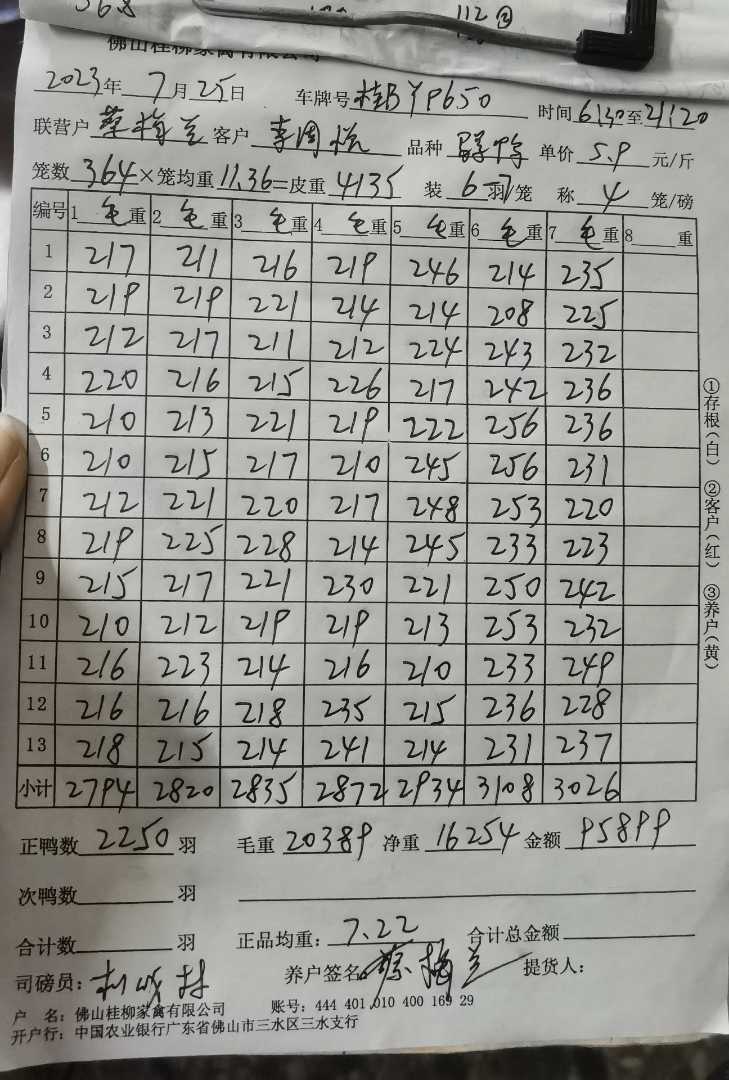 568
112 ②
佛山桂柳家禽有限公司
2023年 7月25日 车牌号 桂BYP650 时间 6:30至21:20
联营户 蔡梅兰 客户 李周 品种 单价 5.9 元/斤
笼数 364 ×笼均重 11.36 =皮重 4135 装 6-7 羽/笼 称 4 笼/磅
编号 1 毛 重 2 毛 重 3 毛 重 4 毛 重 5 毛 重 6 毛 重 7 毛 重 8 重
1 217 211 216 219 246 214 235
2 219 219 221 214 214 208 225
3 212 217 211 212 224 243 232
4 220 216 215 226 217 242 236
5 210 213 221 219 222 256 236
6 210 215 217 210 245 256 231
7 212 221 220 217 248 253 220
8 219 225 228 214 245 233 223
9 215 217 221 230 221 250 242
10 210 212 219 219 213 253 232
11 216 223 214 216 210 233 249
12 216 216 218 235 215 236 228
13 218 215 214 241 214 231 237
小计 2794 2820 2835 2872 2934 3108 3026
①存根(白) ②客户(红) ③养户(黄)
正鸭数 2250 羽 毛重 20389 净重 16254 金额 95899
次鸭数 羽
合计数 羽 正品均重: 7.22 合计总金额
司磅员: 养户签名 蔡梅兰 提货人:
户 名: 佛山桂柳家禽有限公司 账号: 444 401 010 400 169 29
开户行: 中国农业银行广东省佛山市三水区三水支行